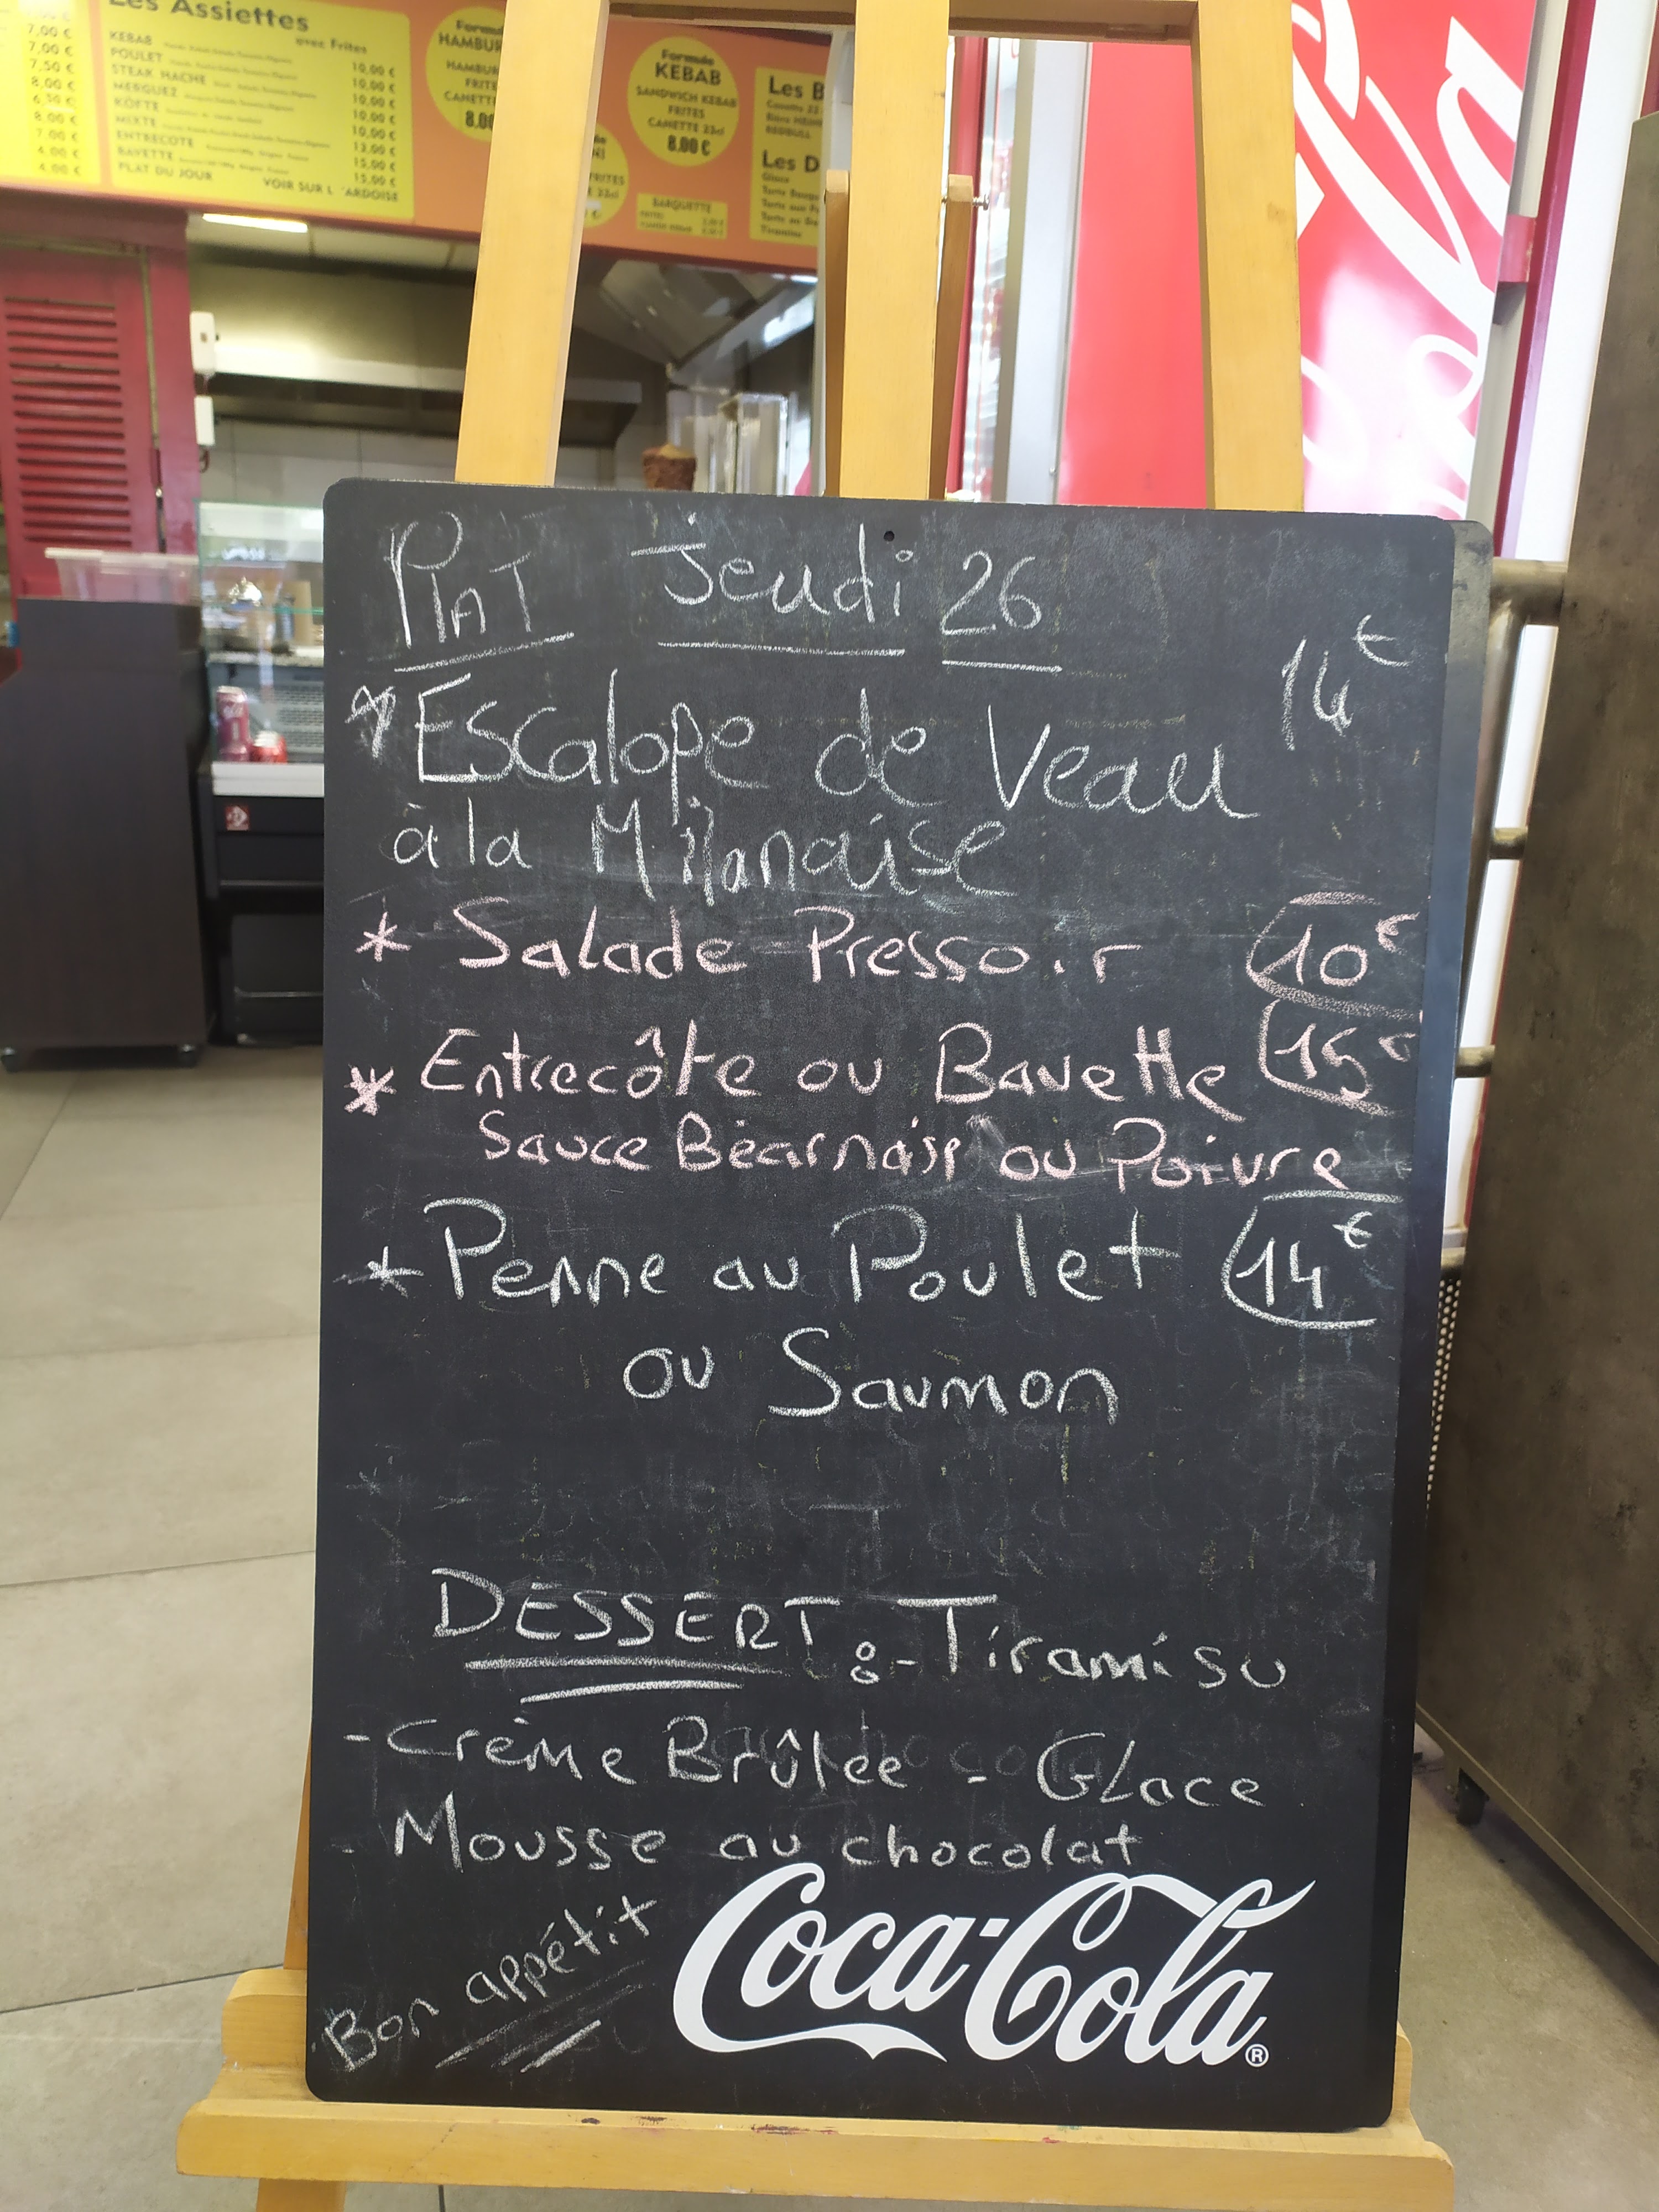 Les Assiettes
avec Frites
7,00 €
7,00 €
7,50 €
8,00 €
6,50 €
8,00 €
7,00 €
4,00 €
4,00 €
KEBAB 10,00 €
POULET 10,00 €
STEAK HACHE 10,00 €
MERGUEZ 10,00 €
KÖFTE 10,00 €
MIXTE 12,00 €
ENTRECOTE 15,00 €
BAVETTE 15,00 €
PLAT DU JOUR VOIR SUR L 'ARDOISE
Formule
HAMBUR
HAMBUR
FRITE
CANETT
8.00
Formule
KEBAB
SANDWICH KEBAB
FRITES
CANETTE 33cl
8.00 €
FRITES
33cl
BARQUETTE
Les B
REDBULL
Les D
Glace
Tiramisu
PlAT Jeudi 26
* Escalope de Veau 14€
à la Milanaise
* Salade Presso.r 10€
* Entrecôte ou Bavette 15€
Sauce Béarnaise ou Poivre
* Penne au Poulet 14€
ou Saumon
DESSERT :- Tiramisu
- Crème Brûlée - GLace
- Mousse au chocolat
Bon appétit
Coca-Cola®